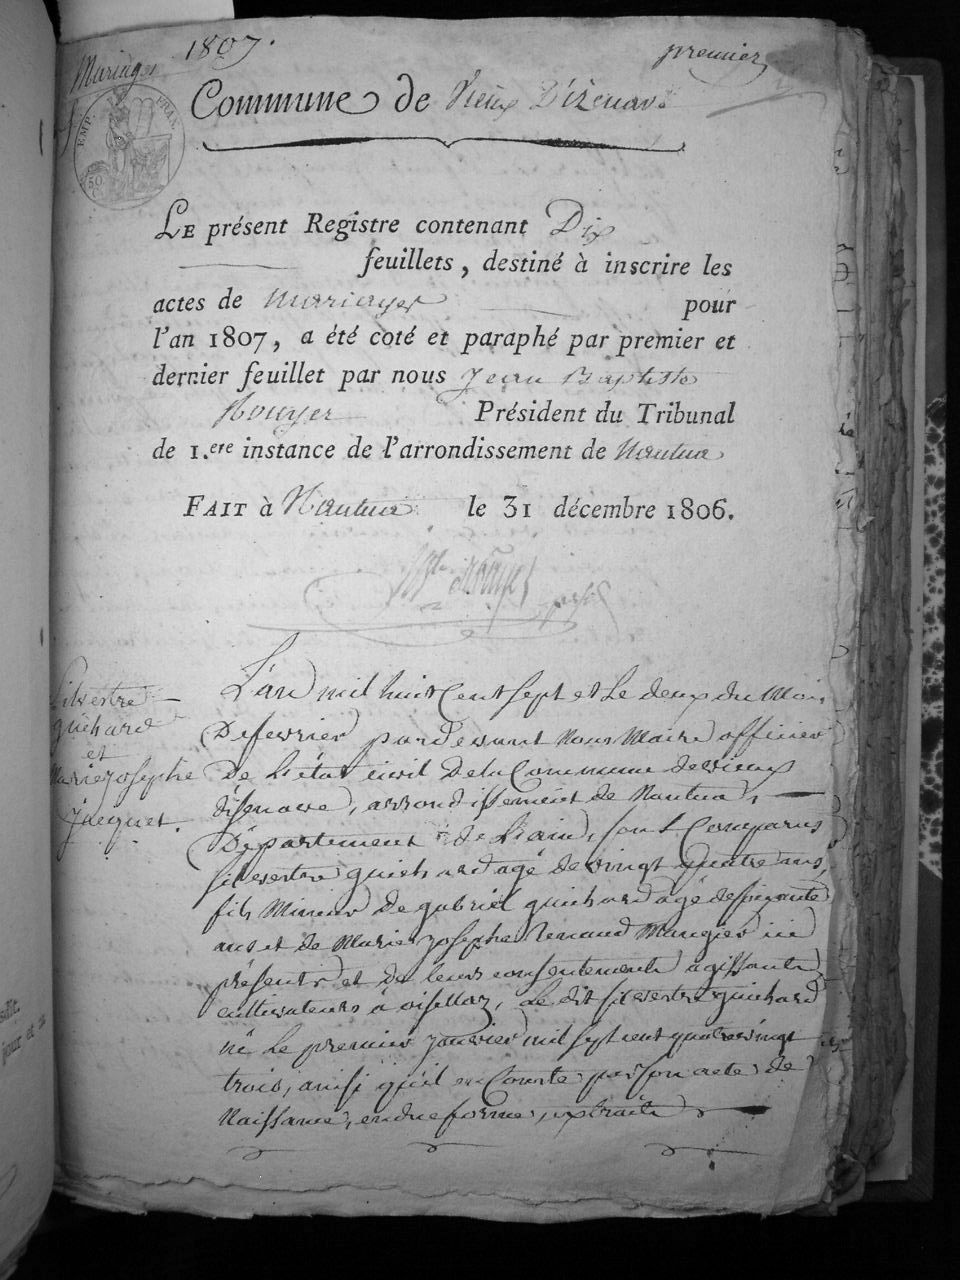 1807.
premier
Mariages
Commune de Vieux D'izenave
EMP. FRAN.
50
C
LE présent Registre contenant Dix
feuillets, destiné à inscrire les
actes de Mariages pour
l'an 1807, a été coté et paraphé par premier et
dernier feuillet par nous Jean Baptiste
Rouyer Président du Tribunal
de 1.ere instance de l'arrondissement de Nantua
FAIT à Nantua le 31 décembre 1806.
Silvestre
guichard
et
Marie josephe
Jacquet.
L'an mil huit Cent Sept et Le deux du Mois
De fevrier par devant Nous Maire officier
De L'état Civil De la Commune de vieux
d'isenave, arrondissement de Nantua,
Département de L'ain, sont Comparus
silvestre guichard agé de vingt quatre ans,
fils Mineur De gabriel guichard agé de soixante
ans et de Marie josephe Renaud Mangier ici
présents et de leurs consentements agissants
cultivateurs à oisellaz, Le dit silvestre guichard
né Le premier janvier mil sept cent quatre vingt
trois, ainsi qu'il en Conste par son acte de
Naissance, en due forme, extraite
sdit,
jour et